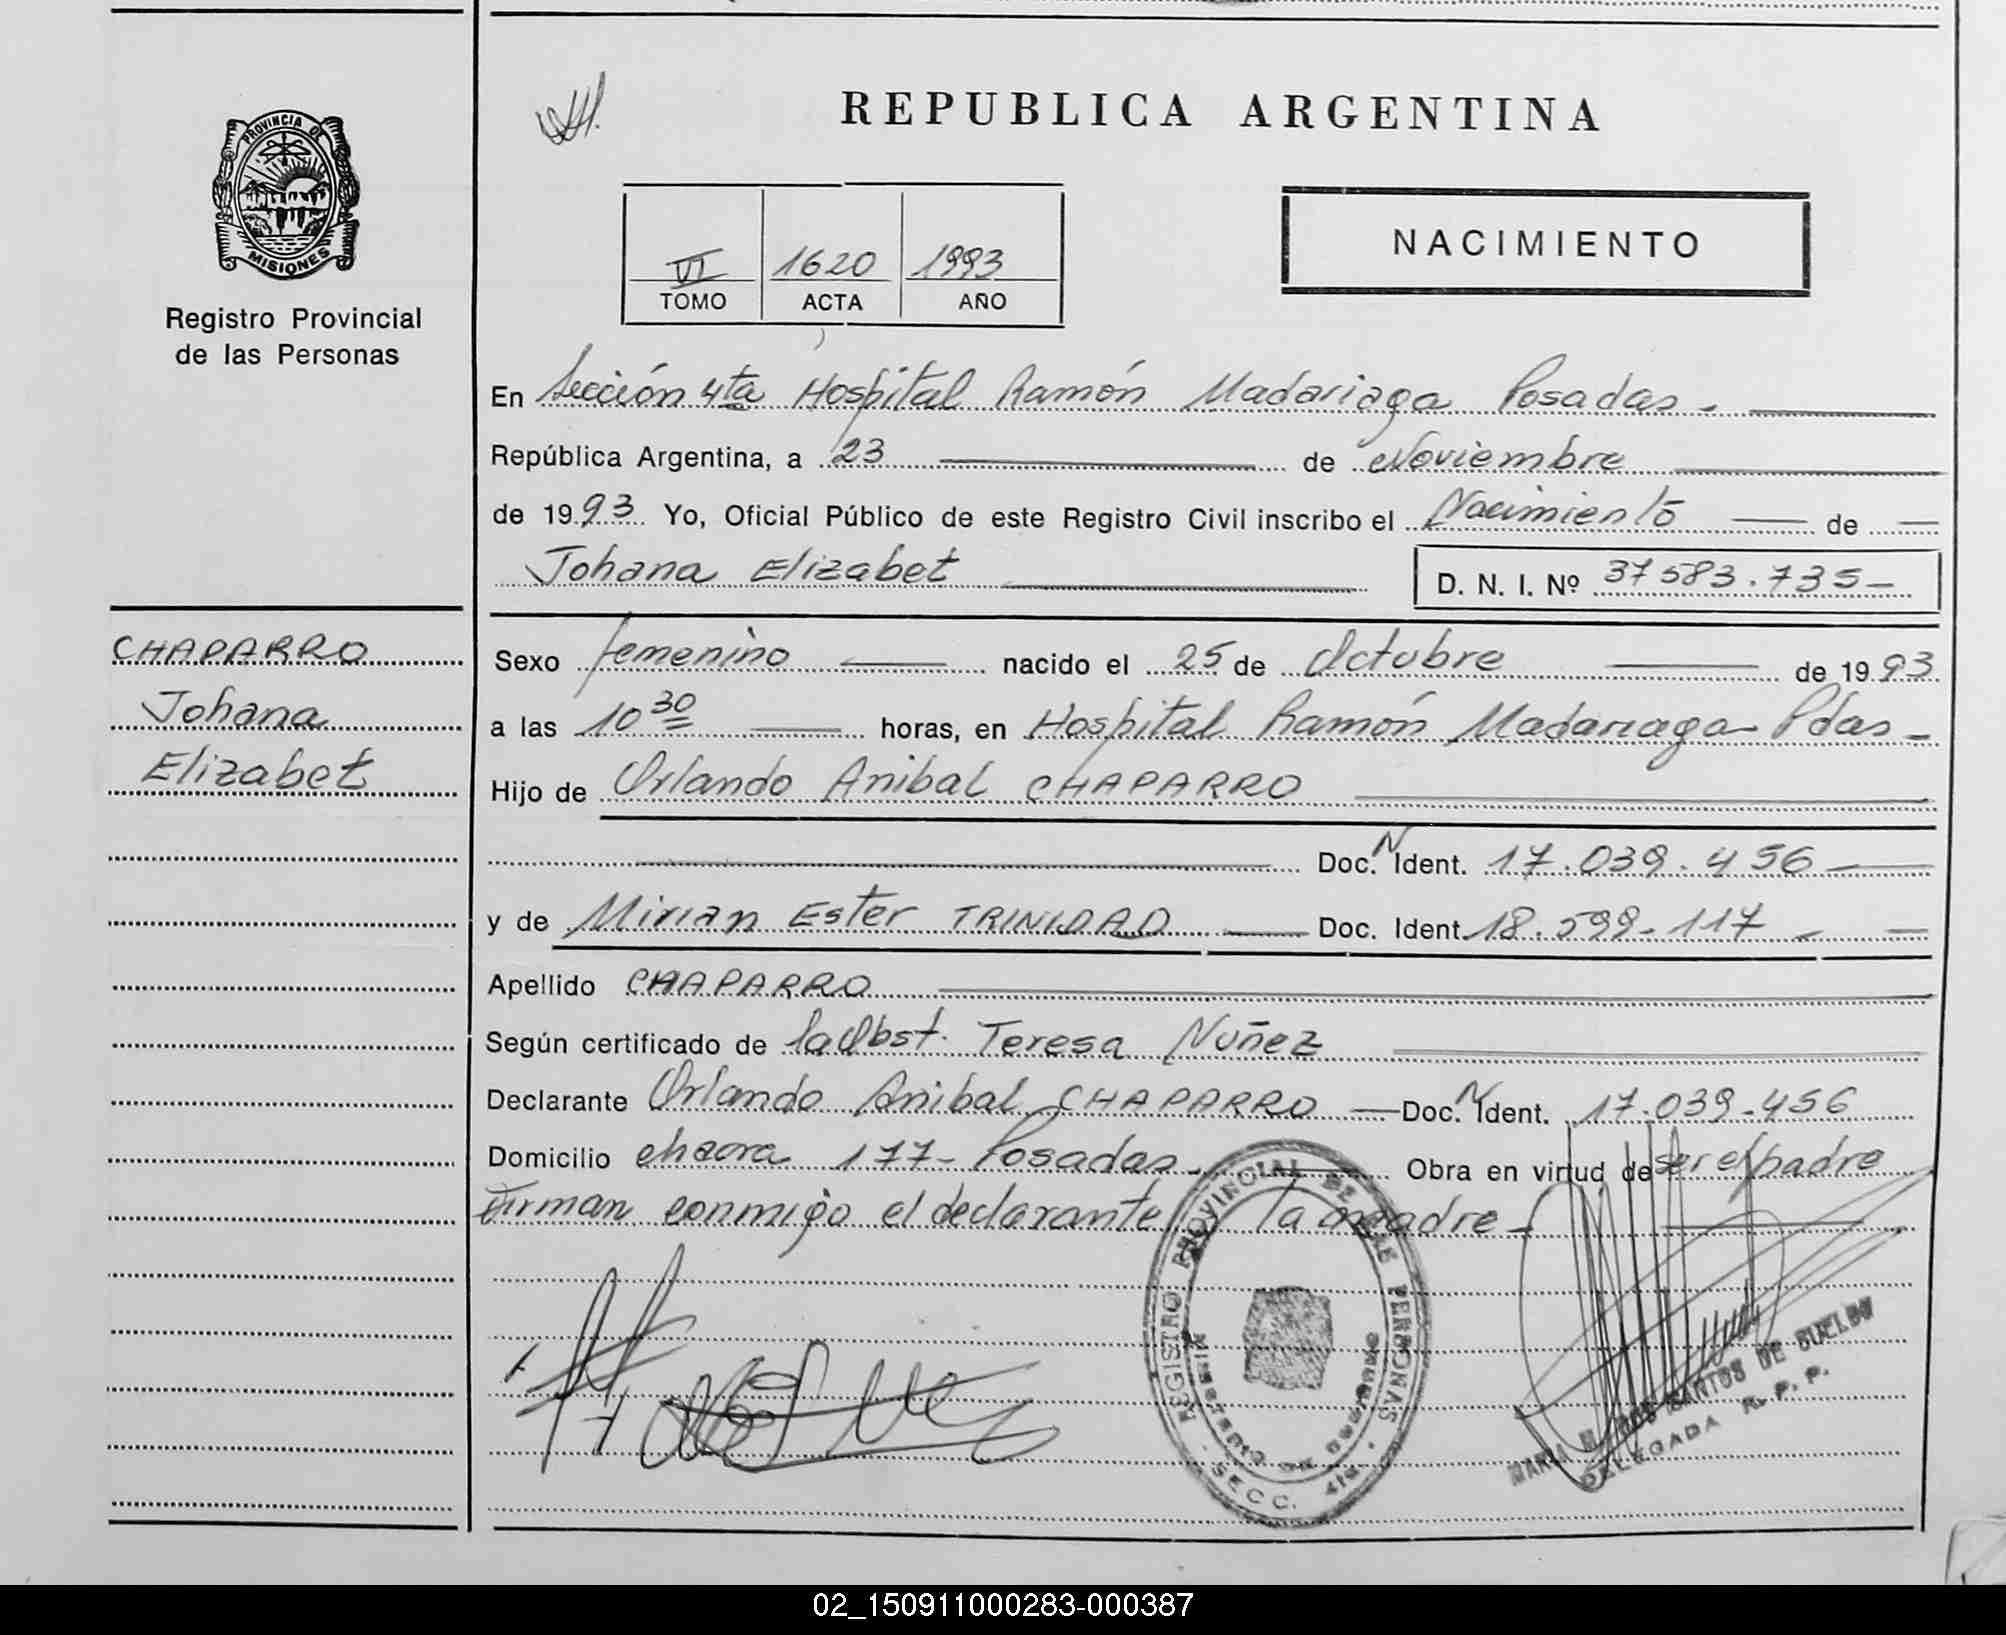 REPUBLICA ARGENTINA
PROVINCIA DE
MISIONES
Registro Provincial
de las Personas
VI 1620 1993
TOMO ACTA AÑO
NACIMIENTO
En Sección 4ta Hospital Ramón Madariaga Posadas.
República Argentina, a 23 de Noviembre
de 1993 Yo, Oficial Público de este Registro Civil inscribo el Nacimiento de
Johana Elizabet D. N. I. Nº 37583.735-
CHAPARRO
Johana
Elizabet
Sexo femenino nacido el 25 de Octubre de 1993
a las 10 30 horas, en Hospital Ramón Madariaga Pdas-
Hijo de Orlando Anibal CHAPARRO
Doc. N Ident. 17.039.456
y de Mirian Ester TRINIDAD Doc. Ident. 18.599.117
Apellido CHAPARRO
Según certificado de la Obst. Teresa Nuñez
Declarante Orlando Anibal CHAPARRO Doc. N Ident. 17.039.456
Domicilio chacra 177- Posadas. Obra en virtud de ser el padre
Firman conmigo el declarante y la madre-
REGISTRO PROVINCIAL DE LAS PERSONAS
SECC. 4ta.
MARIA DOS SANTOS DE
DELEGADA R. P. P.
02_150911000283-000387